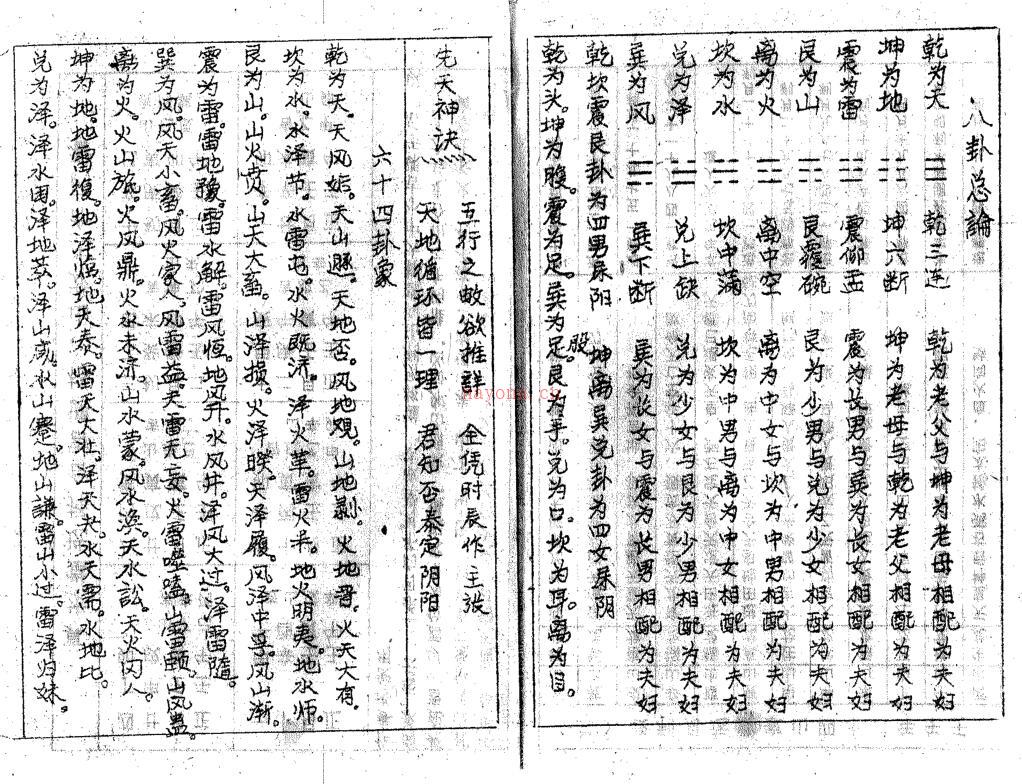 八卦总論
乾为天 ☰ 乾三连 乾为老父与坤为老母相配为夫妇
坤为地 ☷ 坤六断 坤为老母与乾为老父相配为夫妇
震为雷 ☳ 震仰盂 震为长男与巽为长女相配为夫妇
艮为山 ☶ 艮覆碗 艮为少男与兑为少女相配为夫妇
离为火 ☲ 离中空 离为中女与坎为中男相配为夫妇
坎为水 ☵ 坎中满 坎为中男与离为中女相配为夫妇
兑为泽 ☱ 兑上缺 兑为少女与艮为少男相配为夫妇
巽为风 ☴ 巽下断 巽为长女与震为长男相配为夫妇
乾坎震艮卦为四男属阳 坤离巽兑卦为四女属阴
乾为头。坤为腹。震为足。巽为足。艮为手。兑为口。坎为耳。离为目。
股
先天神诀
五行之数欲推詳 全凭时辰作主张
天地循环皆一理 君知否泰定阴阳
六十四卦象
乾为天。天风姤。天山遯。天地否。风地观。山地剥。火地晋。火天大有。
坎为水。水泽节。水雷屯。水火既济。泽火革。雷火丰。地火明夷。地水师。
艮为山。山火贲。山天大畜。山泽损。火泽睽。天泽履。风泽中孚。风山渐。
震为雷。雷地豫。雷水解。雷风恒。地风升。水风井。泽风大过。泽雷隨。
巽为风。风天小畜。风火家人。风雷益。天雷无妄。火雷噬嗑。山雷頤。山风蛊。
离为火。火山旅。火风鼎。火水未济。山水蒙。风水涣。天水訟。天火冈人。
坤为地。地雷復。地泽临。地天泰。雷天大壮。泽天夬。水天需。水地比。
兑为泽。泽水困。泽地萃。泽山咸。水山蹇。地山謙。雷山小过。雷泽归妹。
nayona.cn